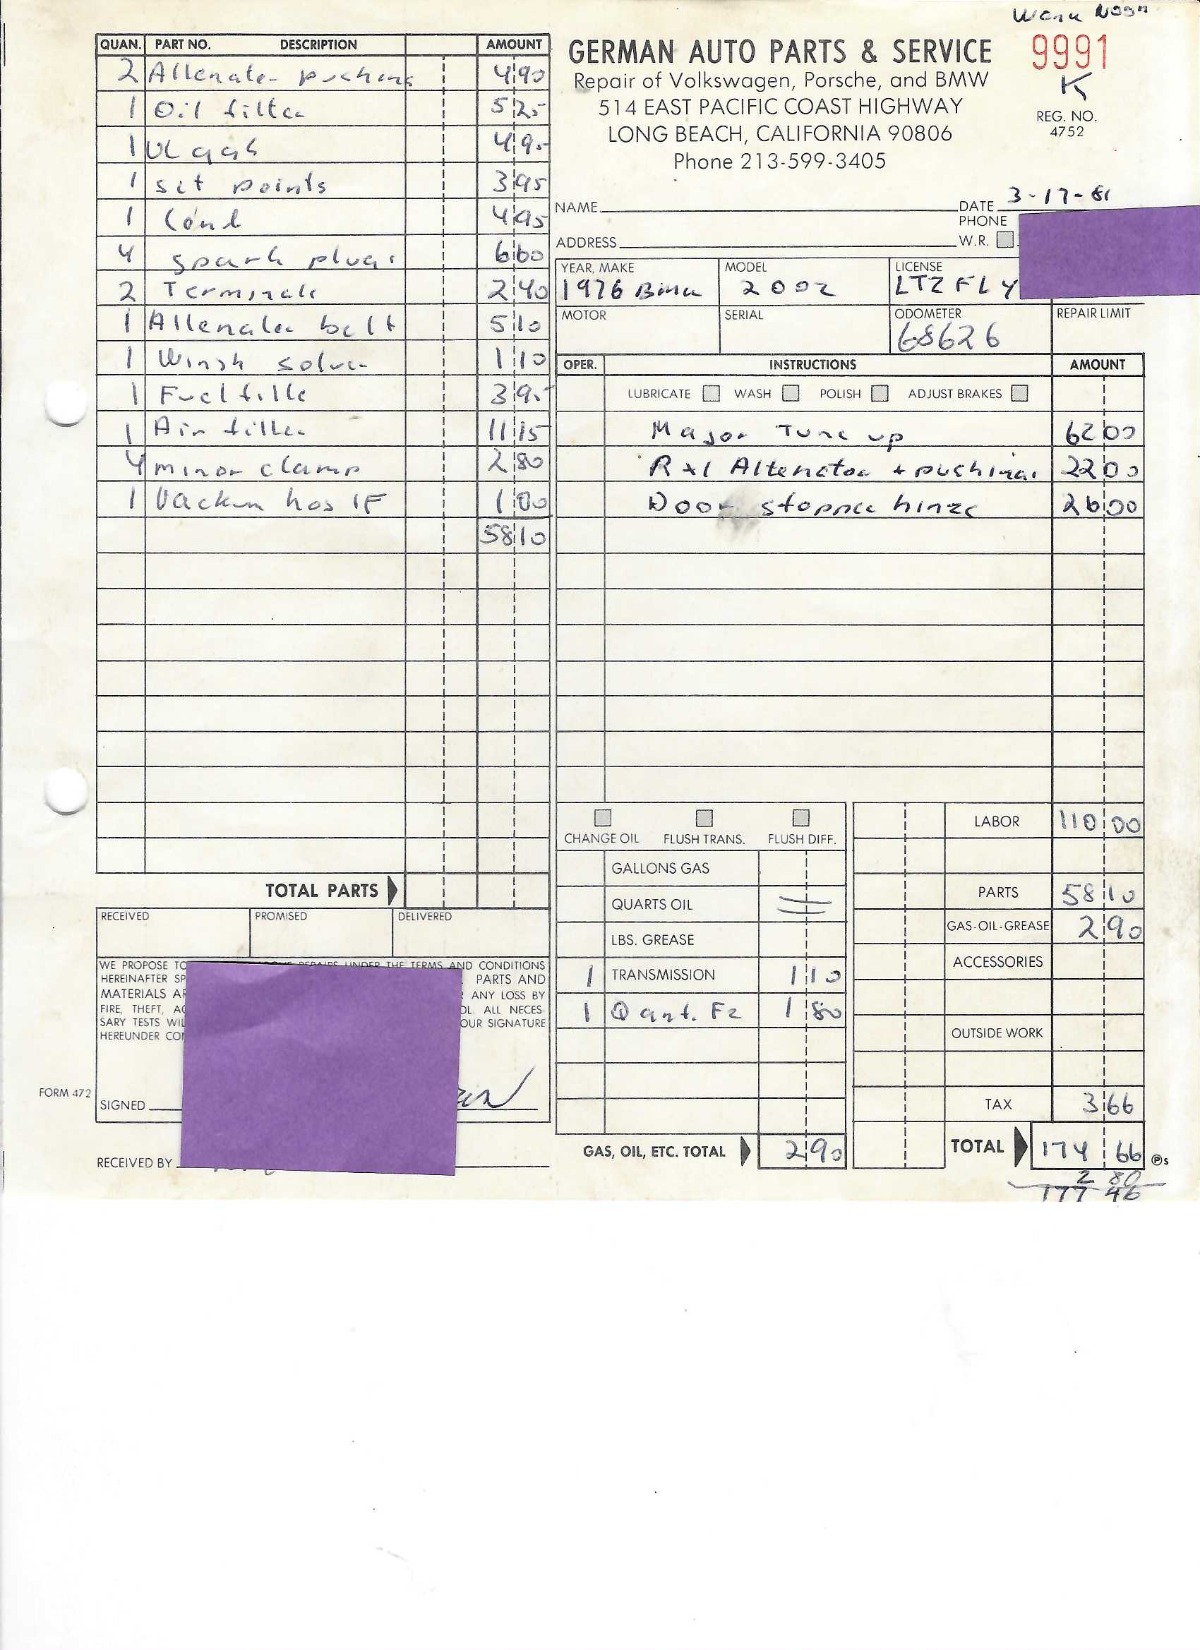 QUAN. PART NO. DESCRIPTION AMOUNT
2 Altenator puching 4 90
1 Oil filter 5 25
1 4 9-
1 set points 3 95
1 Cond 4 95
4 spark plugs 6 60
2 Terminals 2 40
1 Altenator belt 5 10
1 Winsh solve 1 10
1 Fuel filte 3 9-
1 Air filter 11 15
4 minor clamp 2 80
1 Vackum hos 1F 1 00
58 10
TOTAL PARTS
RECEIVED PROMISED DELIVERED
WE PROPOSE TO REPAIRS UNDER THE TERMS AND CONDITIONS
HEREINAFTER SP PARTS AND
MATERIALS AR ANY LOSS BY
FIRE, THEFT, AC OL. ALL NECES-
SARY TESTS WIL OUR SIGNATURE
HEREUNDER CON
FORM 472
SIGNED
RECEIVED BY
GERMAN AUTO PARTS & SERVICE
Repair of Volkswagen, Porsche, and BMW
514 EAST PACIFIC COAST HIGHWAY
LONG BEACH, CALIFORNIA 90806
Phone 213-599-3405
Noon
9991
K
REG. NO.
4752
NAME DATE 3-17-81
PHONE
ADDRESS W.R.
YEAR, MAKE MODEL LICENSE
1976 Bmw 2002 LTZFLY
MOTOR SERIAL ODOMETER REPAIR LIMIT
68626
OPER. INSTRUCTIONS AMOUNT
LUBRICATE WASH POLISH ADJUST BRAKES
Major Tune up 62 00
R+I Altenator + puching 22 00
Door stopper hinge 26 00
CHANGE OIL FLUSH TRANS. FLUSH DIFF.
GALLONS GAS
QUARTS OIL
LBS. GREASE
1 TRANSMISSION 1 10
1 Qant. Fz 1 80
GAS, OIL, ETC. TOTAL 2 90
LABOR 110 00
PARTS 58 10
GAS-OIL-GREASE 2 90
ACCESSORIES
OUTSIDE WORK
TAX 3 66
TOTAL 174 66 Ps
2 80
177 46